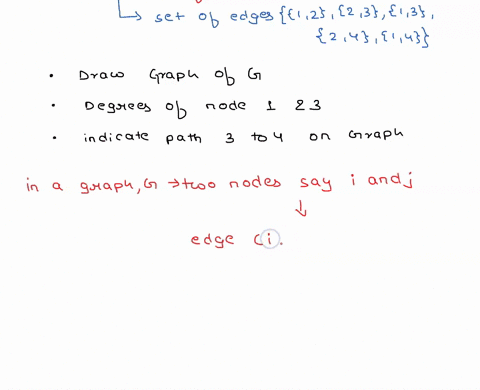 ↳ set of edges {{1,2}, {2,3}, {1,3},
{2,4}, {1,4}}
• Draw Graph of G
• Degrees of node 1 & 3
• indicate path 3 to 4 on Graph
in a graph, G → two nodes say i and j
↓
edge (i.